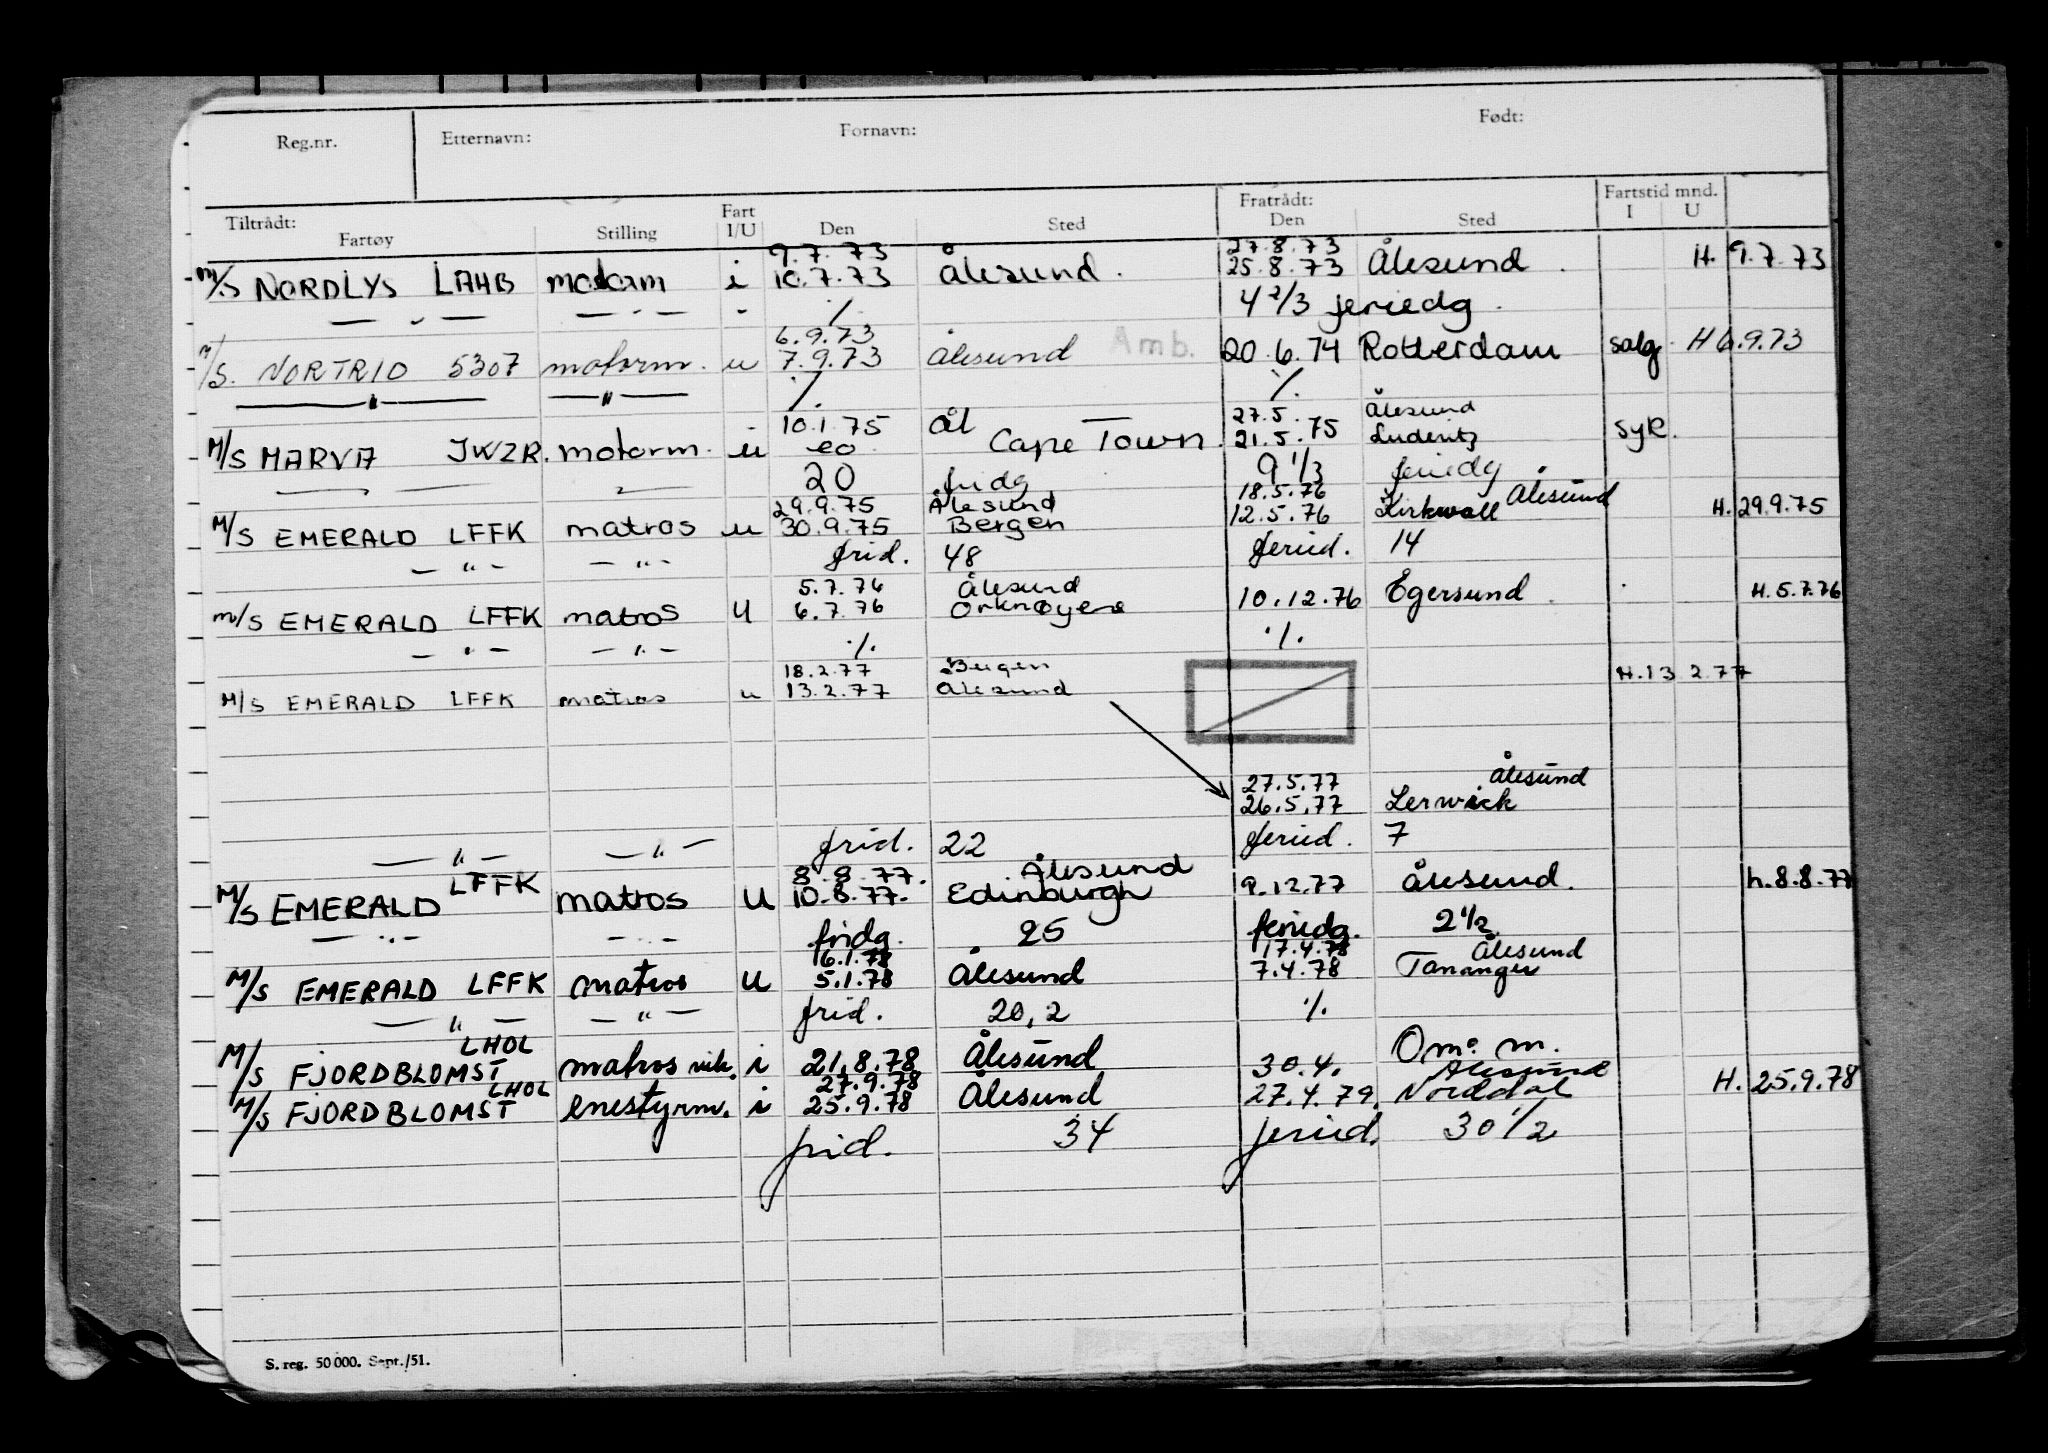 Reg.nr. Etternavn: Fornavn: Født:
Tiltrådt: Fratrådt: Fartstid mnd.
Fartøy Stilling Fart I/U Den Sted Den Sted I U
9.7.73 27.8.73
M/S NORDLYS LAHB motorm i 10.7.73 Ålesund. 25.8.73 Ålesund. H. 9.7.73
— " — — " — - ./. 4 2/3 feriedg.
6.9.73
M/S. NORTRIO 5307 motorm. u 7.9.73 Ålesund Amb. 20.6.74 Rotterdam salg. H 6.9.73
— " — — " — ./. ./.
10.1.75 Ål 27.5. Ålesund
M/S MARVA JWZR. motorm. u eo Cape Town. 21.5.75 Luderitz syk.
— — — 20 fridg 9 1/3 feriedg
29.9.75 Ålesund 18.5.76 Ålesund
M/S EMERALD LFFK matros u 30.9.75 Bergen 12.5.76 Kirkwall H. 29.9.75
— " — — " — frid. 48 feried. 14
5.7.76 Ålesund
M/S EMERALD LFFK matros U 6.7.76 Orknøyene 10.12.76 Egersund. H. 5.7.76
— " — — " — ./. ./.
18.2.77 Bergen
M/S EMERALD LFFK matros u 13.2.77 Ålesund H.13 2.77
27.5.77 Ålesund
26.5.77 Lerwick
— " — — " — frid. 22 feried. 7
8.8.77. Ålesund
M/S EMERALD LFFK matros U 10.8.77. Edinburgh 9.12.77 Ålesund. h.8.8.77
— " — — " — fridg. 25 feriedg. 2 1/2
6.1.78 17.4.78 Ålesund
M/S EMERALD LFFK matros U 5.1.78 Ålesund 7.4.78 Tananger
— " — — " — frid. 20,2 ./.
M/S FJORDBLOMST LHOL matros vik. i 21.8.78 Ålesund Om. m.
27.9.78 30.4. Ålesund
M/S FJORDBLOMST LHOL enestyrm. i 25.9.78 Ålesund 27.4.79. Norddal H. 25.9.78
frid. 34 feried. 30 1/2
S. reg. 50 000. Sept./51.